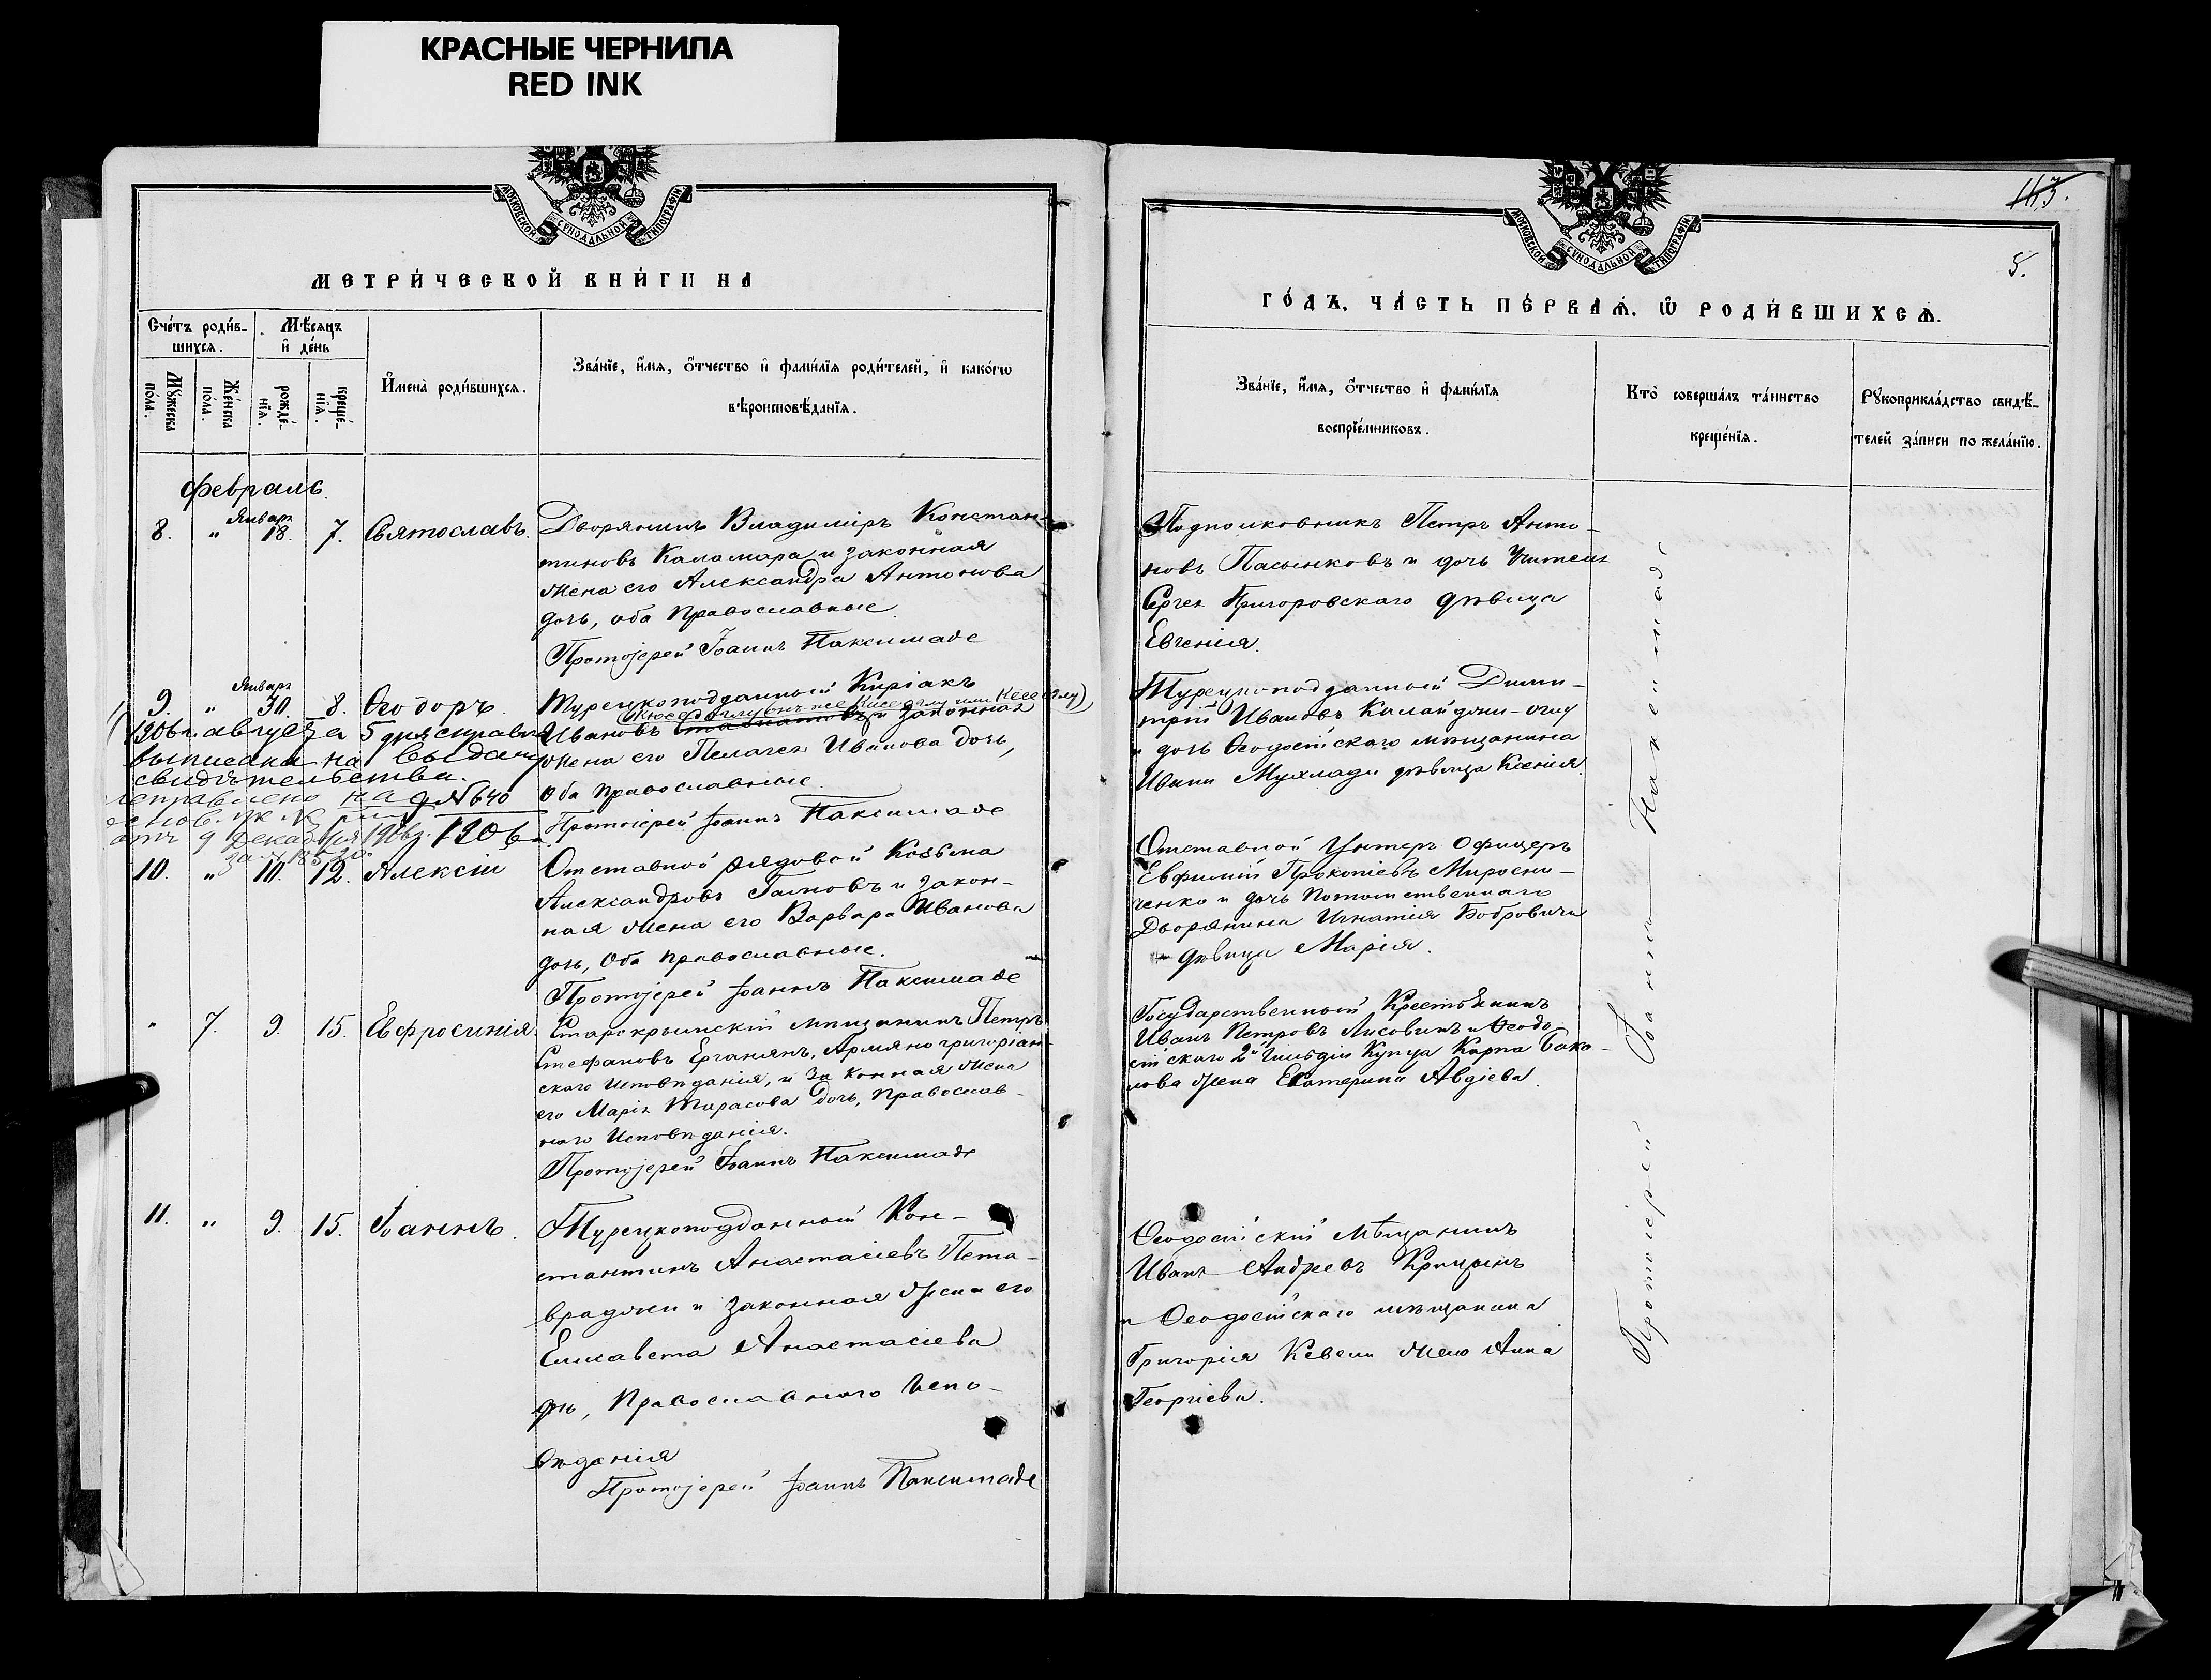 КРАСНЫЕ ЧЕРНИЛА
RED INK
МОСКОВСКОЙ СѴНОДАЛЬНОЙ ТИПОГРАФІИ
МЕТРИ́ЧЕСКОЙ КНИ́ГИ НА
Сче́тъ роди́в-
шихся.
Мѣ́сяцъ
и҆ де́нь
Мꙋ́жеска
по́ла.
Же́нска
по́ла.
рожде́-
нїѧ.
креще́-
нїѧ.
И҆мена̀ роди́вшихсѧ.
Зва́нїе, и҆́мѧ, ѻ҆́тчество и҆ фами́лїѧ роди́телей, и҆ како́гѡ
вѣроисповѣ́данїѧ.
Февраль
8. " Январь 18. 7. Святославъ.
Дворянинъ Владиміръ Констан-
тиновъ Каламара и законная
жена его Александра Антонова
дочь, оба Православные
Протоіерей Іоаннъ Паксимаде
9. " Январь 30. 8. Ѳеодоръ.
Турецкоподданный Киріакъ
Ивановъ и законная
жена его Пелагея Иванова дочь,
Оба православные.
Протоіерей Іоаннъ Паксимаде
1906 г. августа 5 дня справка
выписана на выдачу
свидѣтельства.
№ 640
отъ 9 Декабря 1906
10. " 10. 12. Алексій
Отставной рядовой Козьма
Александровъ и закон-
ная жена его Варвара Иванова
дочь, Оба православные.
Протоіерей Іоаннъ Паксимаде
" 7. 9. 15. Евфросинія.
Старокрымскій мѣщанинъ Петръ
Стефановъ Ерганянъ, Армяно григоріан-
скаго Исповѣданія, и Законная жена
его Марія Тарасова дочь, Православ-
наго Исповѣданія.
Протоіерей Іоаннъ Паксимаде
11. " 9. 15. Іоаннъ.
Турецкоподданный Кон-
стантинъ Анастасіевъ Пета-
враджи и законная жена его
Елисавета Анастасіева
дочь, Православнаго Испо-
вѣданія
Протоіерей Іоаннъ Паксимаде
МОСКОВСКОЙ СѴНОДАЛЬНОЙ ТИПОГРАФІИ
5.
ГО́ДЪ, ЧА́СТЬ ПЕ́РВАѦ, Ѡ҆ РОДИ́ВШИХСѦ.
Зва́нїе, и҆́мѧ, ѻ҆́тчество и҆ фами́лїѧ
воспрїе́мниковъ.
Кто̀ соверша́лъ та́инство
креще́нїѧ.
Рꙋкоприкла́дство свидѣ́-
телей за́писи по жела́нїю.
Подполковникъ Петръ Анто-
новъ Пасынковъ и дочь Учителя
Сергея Григоровскаго дѣвица
Евгенія.
Турецкоподданный Дими-
трій Ивановъ Калайджи-оглу
и дочь Ѳеодосійскаго мѣщанина
Ивана дѣвица Ксенія.
Отставной Унтеръ Офицеръ
Евфимій Прокопіевъ Миросни-
ченко и дочь Потомственнаго
Дворянина Игнатія Бобровича
дѣвица Марія.
Государственный Крестьянинъ
Иванъ Петровъ Лисовинъ и Ѳеодо-
сійскаго 2й Гильдіи Купца Карпа Бако-
лова жена Екатерина Авдіева.
Ѳеодосійскій Мѣщанинъ
Иванъ Андреевъ Крицынъ
и Ѳеодосійскаго мѣщанина
Григорія Кевели жена Анна
Георгіева.
Протоіерей Іоаннъ Паксимаде